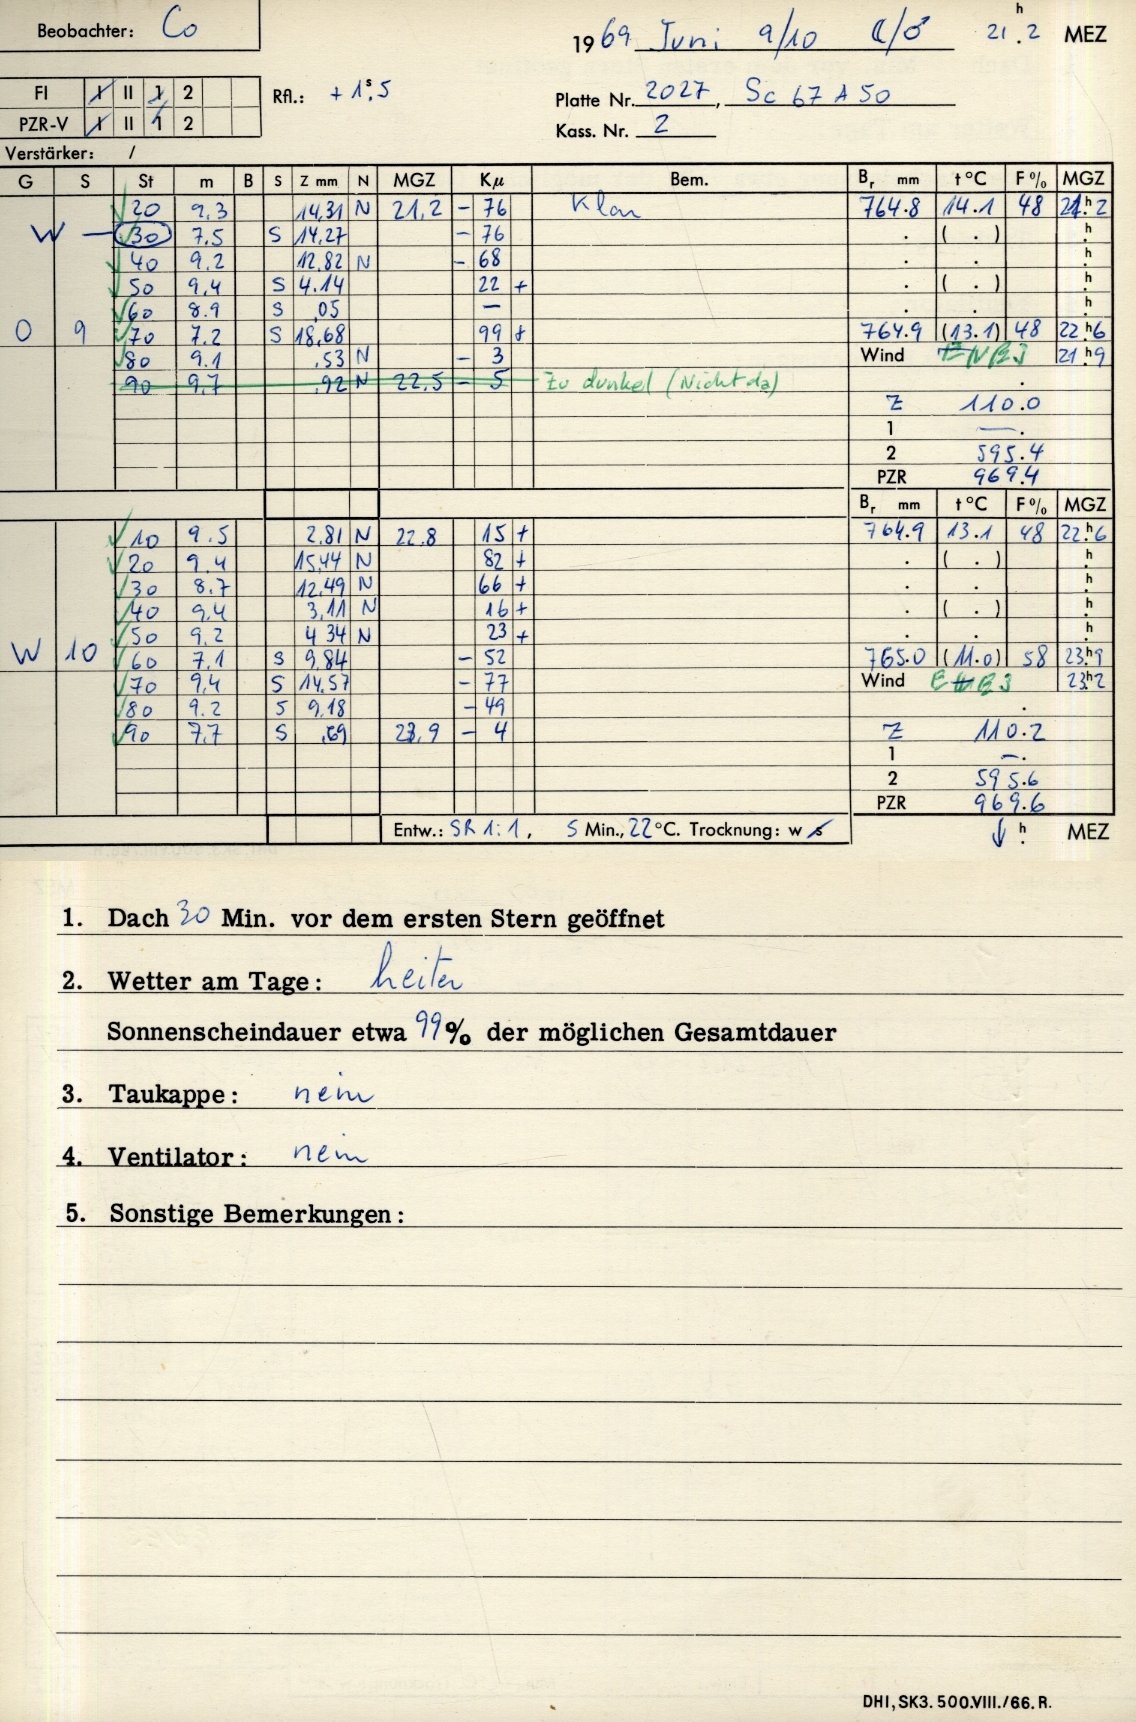 Beobachter: Co
1969 Juni 9/10 ☾/♂ 21.2 h MEZ
FI I II 1 2
Rfl.: + 1.5 s
PZR-V I II 1 2
Platte Nr. 2027, Sc 67 A 50
Kass. Nr. 2
Verstärker: /
G S St m B S Z mm N MGZ Kµ Bem. Br mm t °C F % MGZ
20 9.3 14,31 N 21,2 - 76 Klar 764.8 14.1 48 21.h2
W — 30 7.5 S 14,27 - 76 . ( . ) .h
40 9.2 12.82 N - 68 . . .h
50 9.4 S 4.14 22 + . ( . ) .h
60 8.9 S ,05 — . . .h
O 9 70 7.2 S 18,68 99 + 764.9 (13.1) 48 22.h6
80 9.1 ,53 N - 3 Wind 21h9
90 9,7 ,92 N 22,5 - 5 Zu dunkel (Nicht da) .
Z 110.0
1 — .
2 595.4
PZR 969.4
Br mm t °C F % MGZ
10 9.5 2,81 N 22.8 15 + 764.9 13.1 48 22.h6
20 9.4 15,44 N 82 + . ( . ) .h
30 8.7 12,49 N 66 + . . .h
40 9,4 3,11 N 16 + . ( . ) .h
50 9.2 4 34 N 23 + . . .h
W 10 60 7.1 S 9,84 - 52 765.0 (11.0) 58 23.h9
70 9,4 S 14,57 - 77 Wind 23.h2
80 9.2 S 9,18 - 49 .
90 7.7 S ,69 23,9 - 4 Z 110.2
1 — .
2 595.6
PZR 969.6
Entw.: SR 1:1, 5 Min., 22 °C. Trocknung: w s ↓ .h MEZ
1. Dach 30 Min. vor dem ersten Stern geöffnet
2. Wetter am Tage: heiter
Sonnenscheindauer etwa 99 % der möglichen Gesamtdauer
3. Taukappe: nein
4. Ventilator: nein
5. Sonstige Bemerkungen:
DHI, SK3. 500.VIII./66. R.